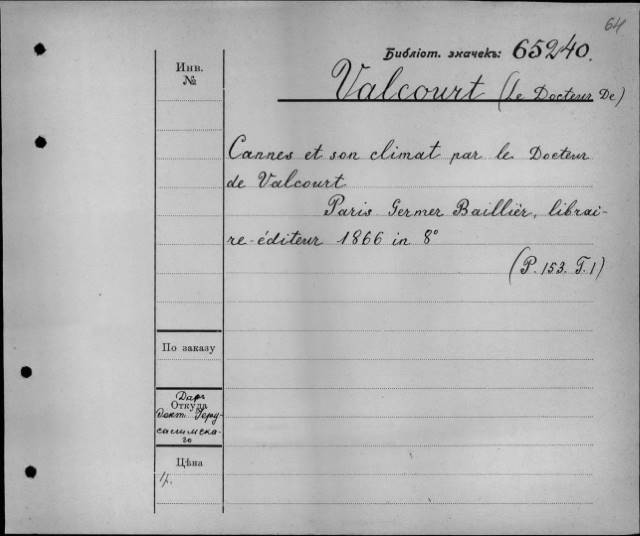 64
Библіот. значекъ: 65240.
Инв.
№
Valcourt (Le Docteur De)
Cannes et son climat par le Docteur
de Valcourt
Paris Germer Baillièr, librai-
re-éditeur 1866 in 8°
(P. 153. T. 1)
По заказу
Даръ
Откуда
Докт. Іеру-
салимска-
го
Цѣна
1р.